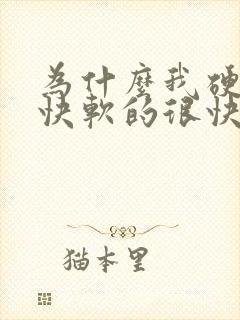 為什麼我硬
快軟的很快
猫本里